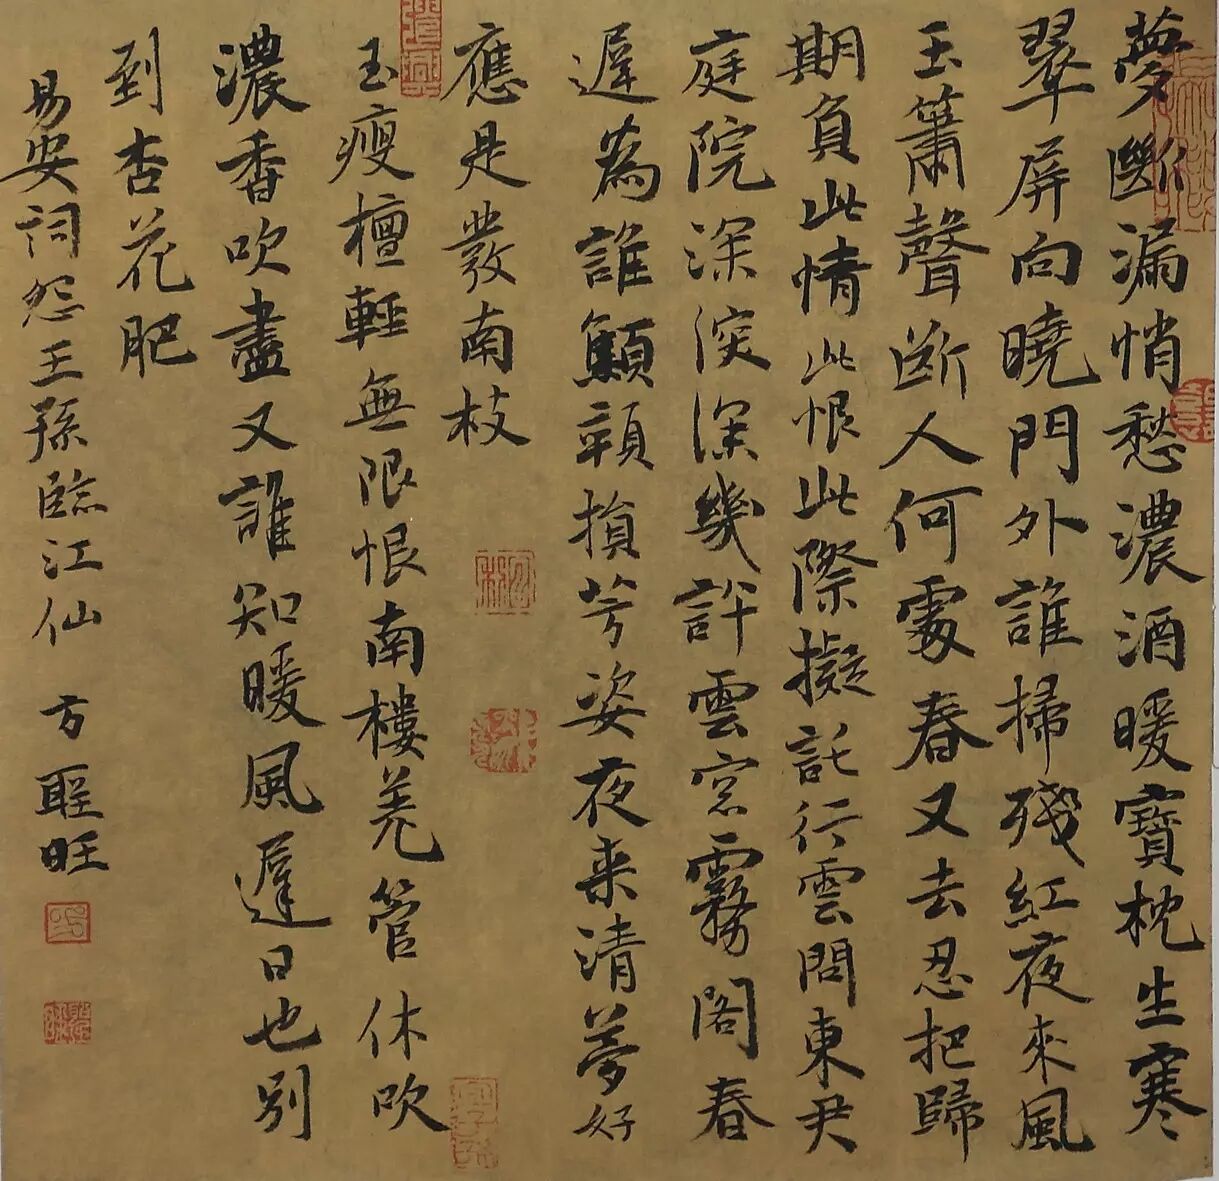 夢斷漏悄愁濃酒暖寶枕生寒
翠屏向曉門外誰掃殘紅夜來風
玉簫聲斷人何處春又去忍把歸
期負此情此恨此際擬託行雲問東尹
庭院深深深幾許雲窓霧閣春
遲為誰顦顇損芳姿夜来清夢好
應是發南枝
玉瘦檀輕無限恨南樓羌管休吹
濃香吹盡又誰知暖風遲日也別
到杏花肥
易安詞怨王孫臨江仙 方聖旺